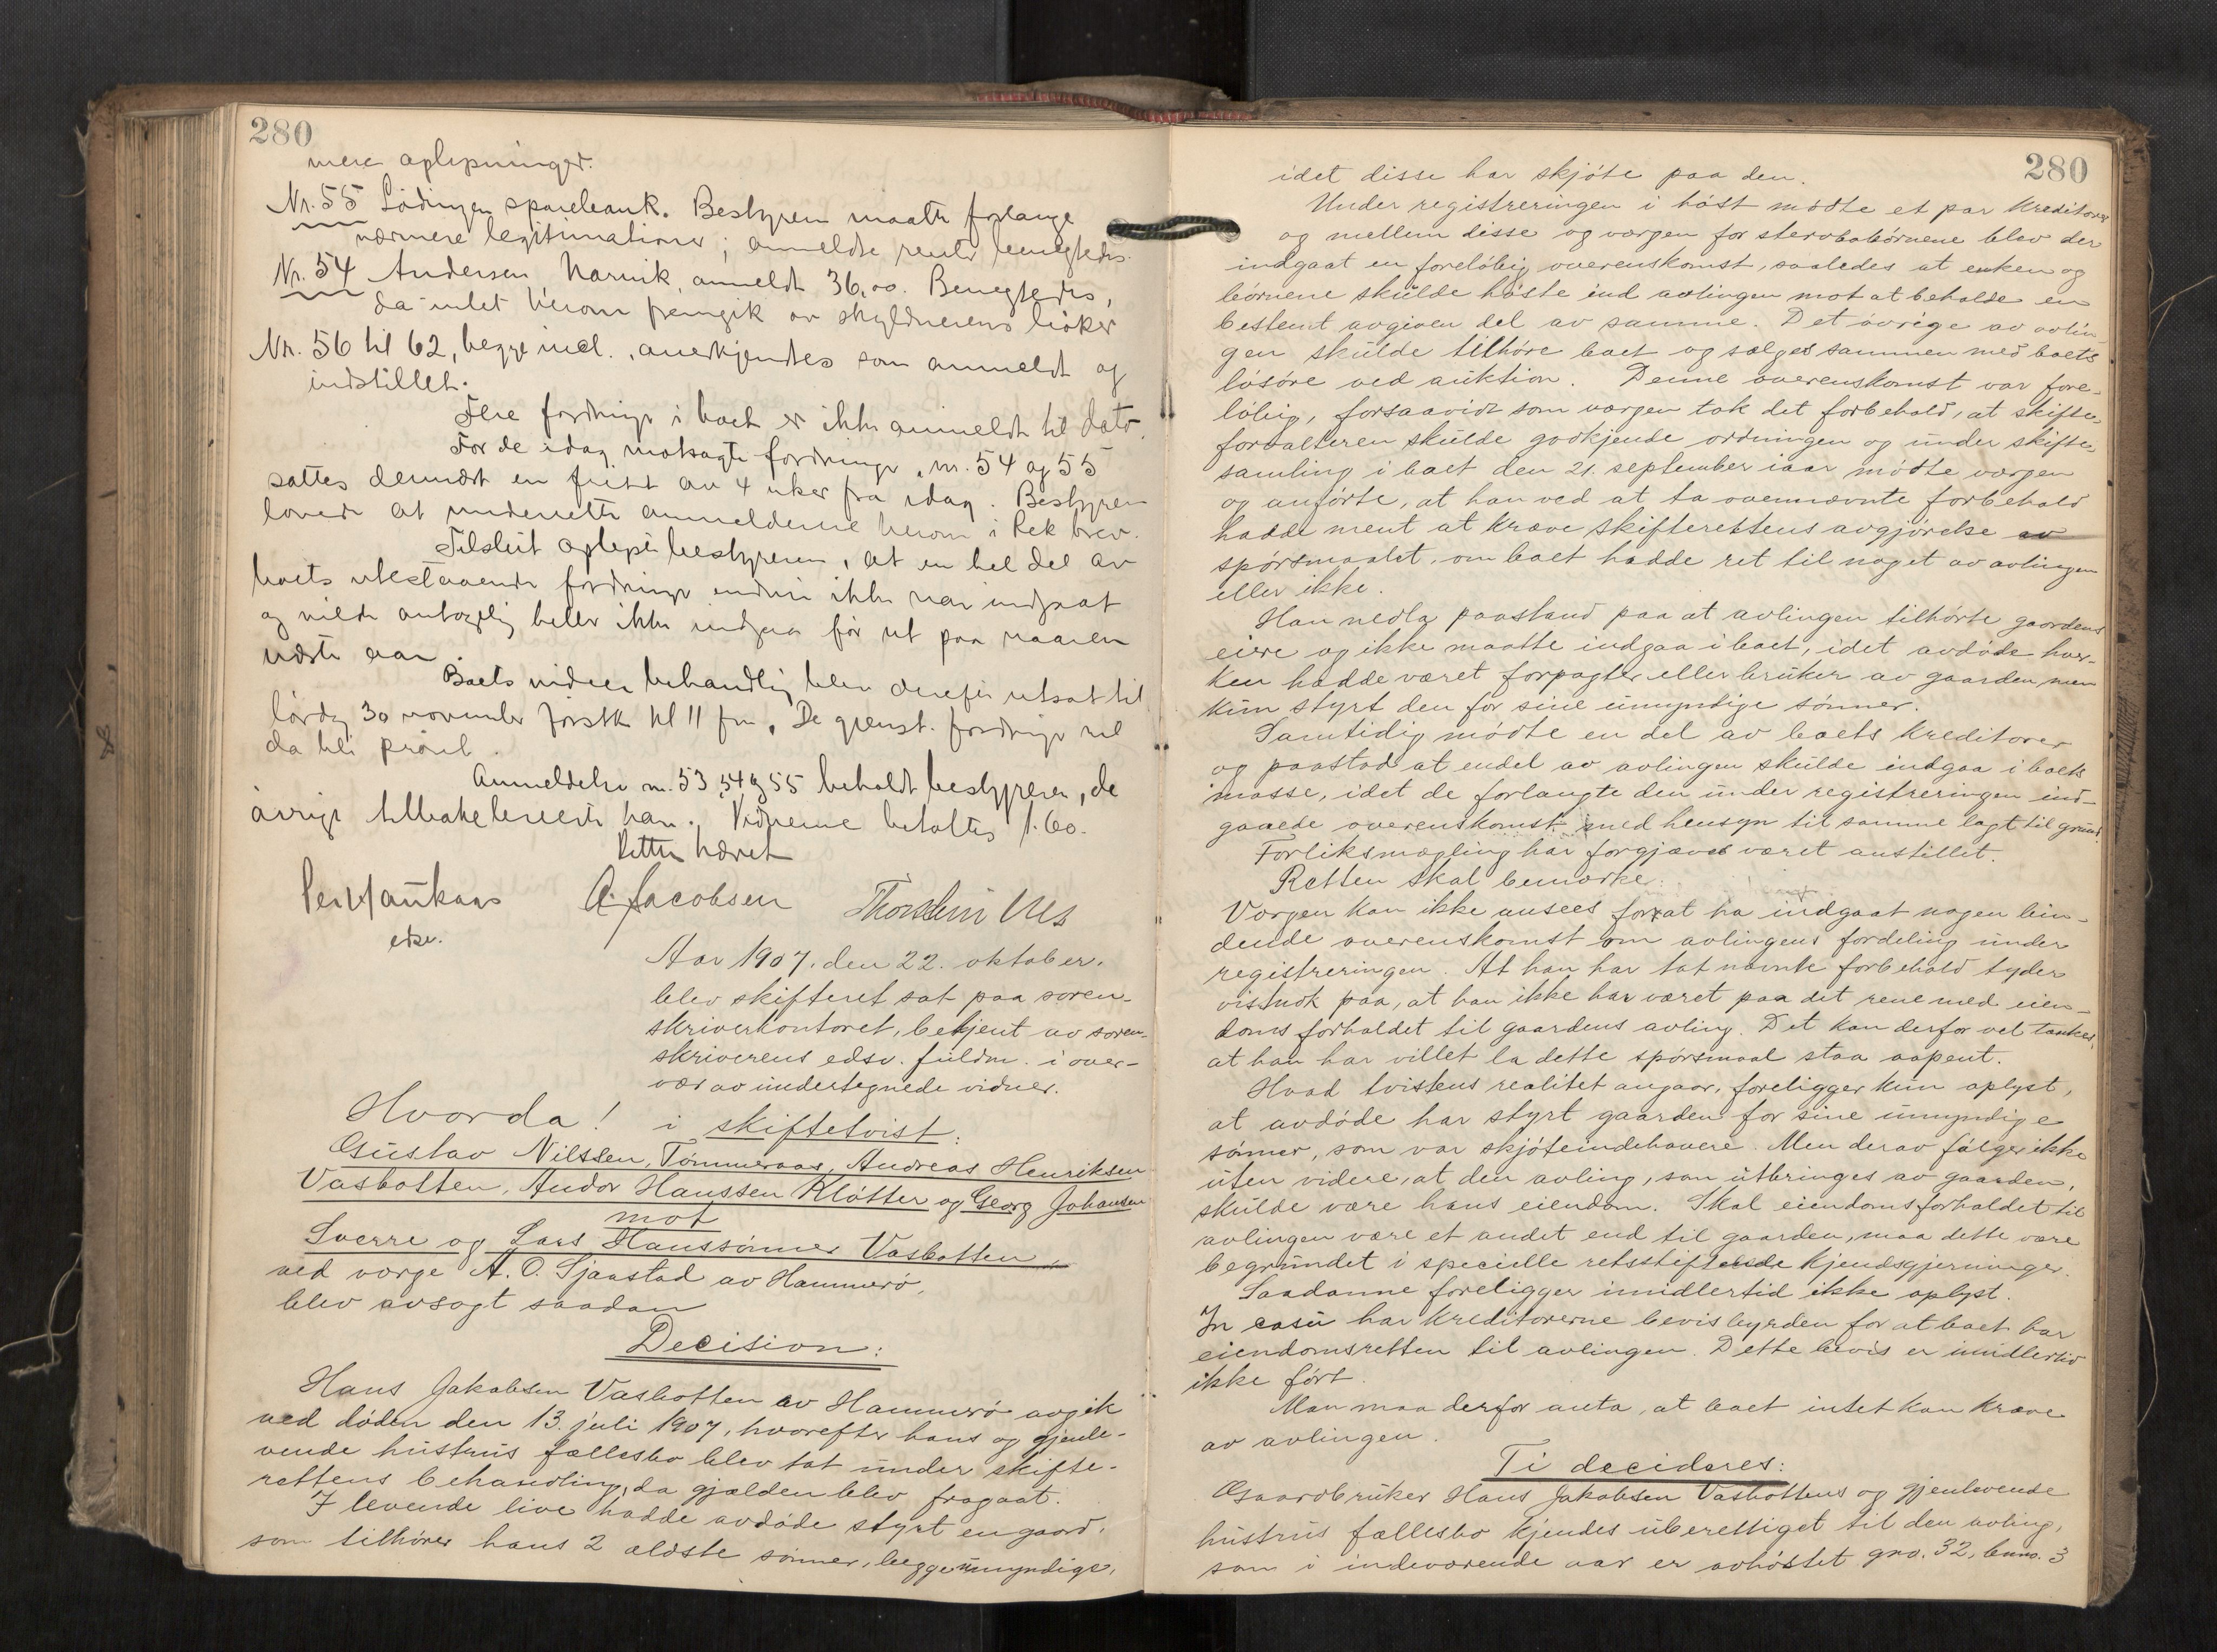 280
mere oplysninger.
Nr. 55 Lödingen sparebank. Bestyreren maatte forlange
nærmere legitimationer; anmeldte renter benegtedes.
Nr. 54 Andersen Narvik, anmeldt 36,00. Benegtedes,
da intet herom fremgik av skyldnerens böker
Nr. 56 til 62, begge incl., anerkjendtes som anmeldt og
indstillet.
Flere fordringer i boet er ikke anmeldt til dato.
For de idag motsagte fordringer, nr. 54 og 55
sattes dernæst en frist av 4 uker fra idag. Bestyreren
lovede at underrette anmelderne herom i Rek brev.
Tilslut oplyste bestyreren, at en hel del av
boets utestaaende fordringer endnu ikke var indgaat
og vilde antagelig heller ikke indgaa för ut paa vaaren
næste aar.
Boets videre behandling blev derefter utsat til
lördag 30 november förstk. kl 11 fm. De gjenst. fordringer vil
da bli prövet.
Anmeldelse nr. 53, 54 og 55 beholdt bestyreren, de
övrige tilbakeleverte han. Vidnerne betaltes 1.60.
Retten hævet
A. Jacobsen
Aar 1907. den 22. oktober.
blev skifteret sat paa soren-
skriverkontoret, betjent av soren-
skriverens edsv. fuldm. i over-
vær av undertegnede vidner.
Hvorda! i skiftetvist:
Gustav Nilssen, Tömmeraas, Andreas Henriksen
Vasbotten, Andor Hanssen Klötter og Georg Johansen
mot
Sverre og Lars Hanssönner Vasbotten,
ved verge A. O. Sjaastad av Hammerö,
blev avsagt saadan
Decision:
Hans Jakobsen Vasbotten av Hammerö avgik
ved döden den 13. juli 1907, hvorefter hans og gjenle-
vende hustrus fællesbo blev tat under skifte-
rettens behandling, da gjælden blev fragaat.
I levende live hadde avdöde styrt en gaard,
som tilhörer hans 2 ældste sönner, begge umyndige,
280
idet disse har skjöte paa den.
Under registreringen i höst mödte et par kreditorer
og mellem disse og vergen for stervbobörnene blev der
indgaat en forelöbig overenskomst, saaledes at enken og
börnene skulde höste ind avlingen mot at beholde en
bestemt avgiven del av samme. Det övrige av avlin-
gen skulde tilhöre boet og sælges sammen med boets
lösöre ved auktion. Denne overenskomst var fore-
löbig, forsaavidt som vergen tok det forbehold, at skifte-
forvalteren skulde godkjende ordningen og under skifte-
samling i boet den 21. september iaar mödte vergen
og anförte, at han ved at ta ovennævnte forbehold
hadde ment at kræve skifterettens avgjörelse av
spörsmaalet, om boet hadde ret til noget av avlingen
eller ikke.
Han nedla paastand paa at avlingen tilhörte gaardens
eiere og ikke maatte indgaa i boet, idet avdöde hver-
ken hadde været forpagter eller bruker av gaarden, men
kun styrt den for sine umyndige sönner.
Samtidig mödte en del av boets kreditorer
og paastod at endel av avlingen skulde indgaa i boets
masse, idet de forlangte den under registreringen ind-
gaaede overenskomst med hensyn til samme lagt til grund.
Forliksmægling har forgjæves været anstillet.
Retten skal bemærke:
Vergen kan ikke ansees for at ha indgaat nogen bin-
dende overenskomst om avlingens fordeling under
registreringen. At han har tat nævnte forbehold tyder
vistnok paa, at han ikke har været paa det rene med eien-
domsforholdet til gaardens avling. Det kan derfor vel tænkes,
at han har villet la dette spörsmaal staa aapent.
Hvad tvistens realitet angaar, foreligger kun oplyst,
at avdöde har styrt gaarden for sine umyndige
sönner, som var skjöteindehavere. Men derav fölger ikke
uten videre, at den avling, som utbringes av gaarden,
skulde være hans eiendom. Skal eiendomsforholdet til
avlingen være et andet end til gaarden, maa dette være
begrundet i specielle retsstiftende kjendsgjerninger.
Saadanne foreligger imidlertid ikke oplyst.
In casu har kreditorerne bevisbyrden for at boet har
eiendomsretten til avlingen. Dette bevis er imidlertid
ikke fört.
Man maa derfor anta, at boet intet kan kræve
av avlingen.
Ti decideres:
Gaardbruker Hans Jakobsen Vasbottens og gjenlevende
hustrus fællesbo kjendes uberettiget til den avling,
som i indeværende aar er avhöstet gno. 32, bruno. 3